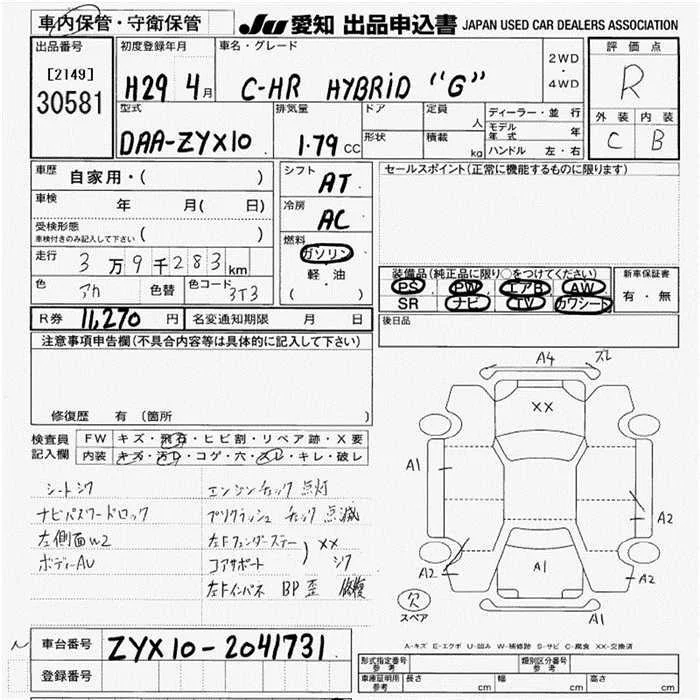 車内保管・守衛保管
JU 愛知 出品申込書 JAPAN USED CAR DEALERS ASSOCIATION
出品番号
[2149]
30581
初度登録年月
H29 4月
車名・グレード
C-HR HYBRID "G"
2WD
・
4WD
評価点
R
外装 内装
C B
型式
DAA-ZYX10
排気量
1.79 CC
ドア
形状
定員
人
積載
kg
ディーラー・並行
モデル年式 年
ハンドル 左・右
車歴
自家用・( )
車検
年 月( 日)
受検形態
車検付きのみ記入して下さい ( )
走行
3万9千283km
色
アカ
色替
色コード
3T3
シフト
AT
冷房
AC
燃料
ガソリン
軽・油
( )
セールスポイント(正常に機能するものに限ります)
装備品(純正品に限り○をつけてください)
PS PW エアB AW
SR ナビ TV カワシート
新車保証書
有・無
R券 11,270 円
名変通知期限 月 日
後日品
注意事項申告欄(不具合内容等は具体的に記入して下さい)
修復歴 有 (箇所 )
検査員
記入欄
FW キズ・飛石・ヒビ割・リペア跡・X要
内装 キズ・汚レ・コゲ・穴・スレ・キレ・破レ
シートシワ
ナビパスワードロック
左側面W2
ボディーAU
エンジンチェック点灯
プリクラッシュ チェック 点滅
左Fフェンダーステー
コアサポート
) XX
シワ
左Fインパネ BP歪 修復
A4
ズレ
XX
A1
A2
A2
A2
A1
A1
欠
スペア
A-キズ E-エクボ U-凹み W-補修跡 S-サビ C-腐食 XX-交換済
車台番号
ZYX10-2041731
登録番号
形式指定番号
参考
類別区分番号
参考
車庫証明用
参考
長さ cm
幅 cm
高さ cm